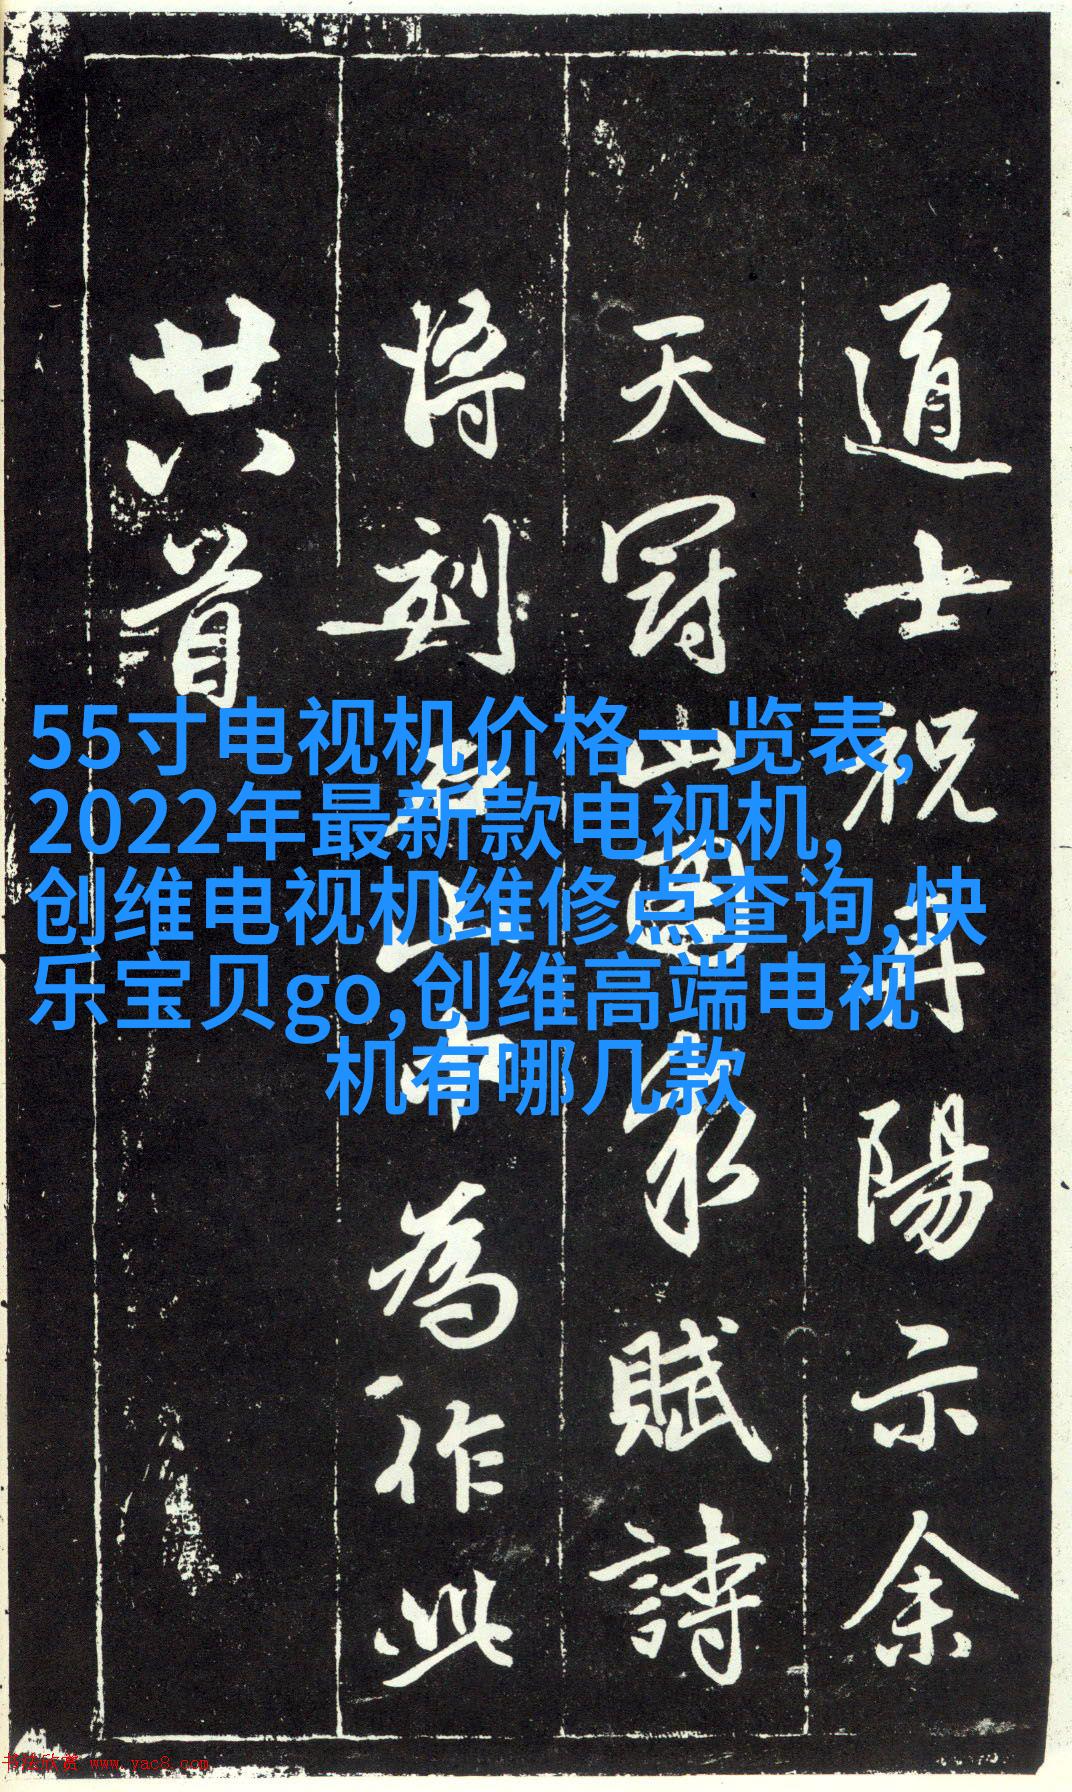 道士祝丹陽示余
天冠山圖求賦詩
將刻石山中為作此
廿八首
55寸电视机价格一览表,
2022年最新款电视机,
创维电视机维修点查询,快
乐宝贝go,创维高端电视
机有哪几款
书法欣赏 www.yac8.com